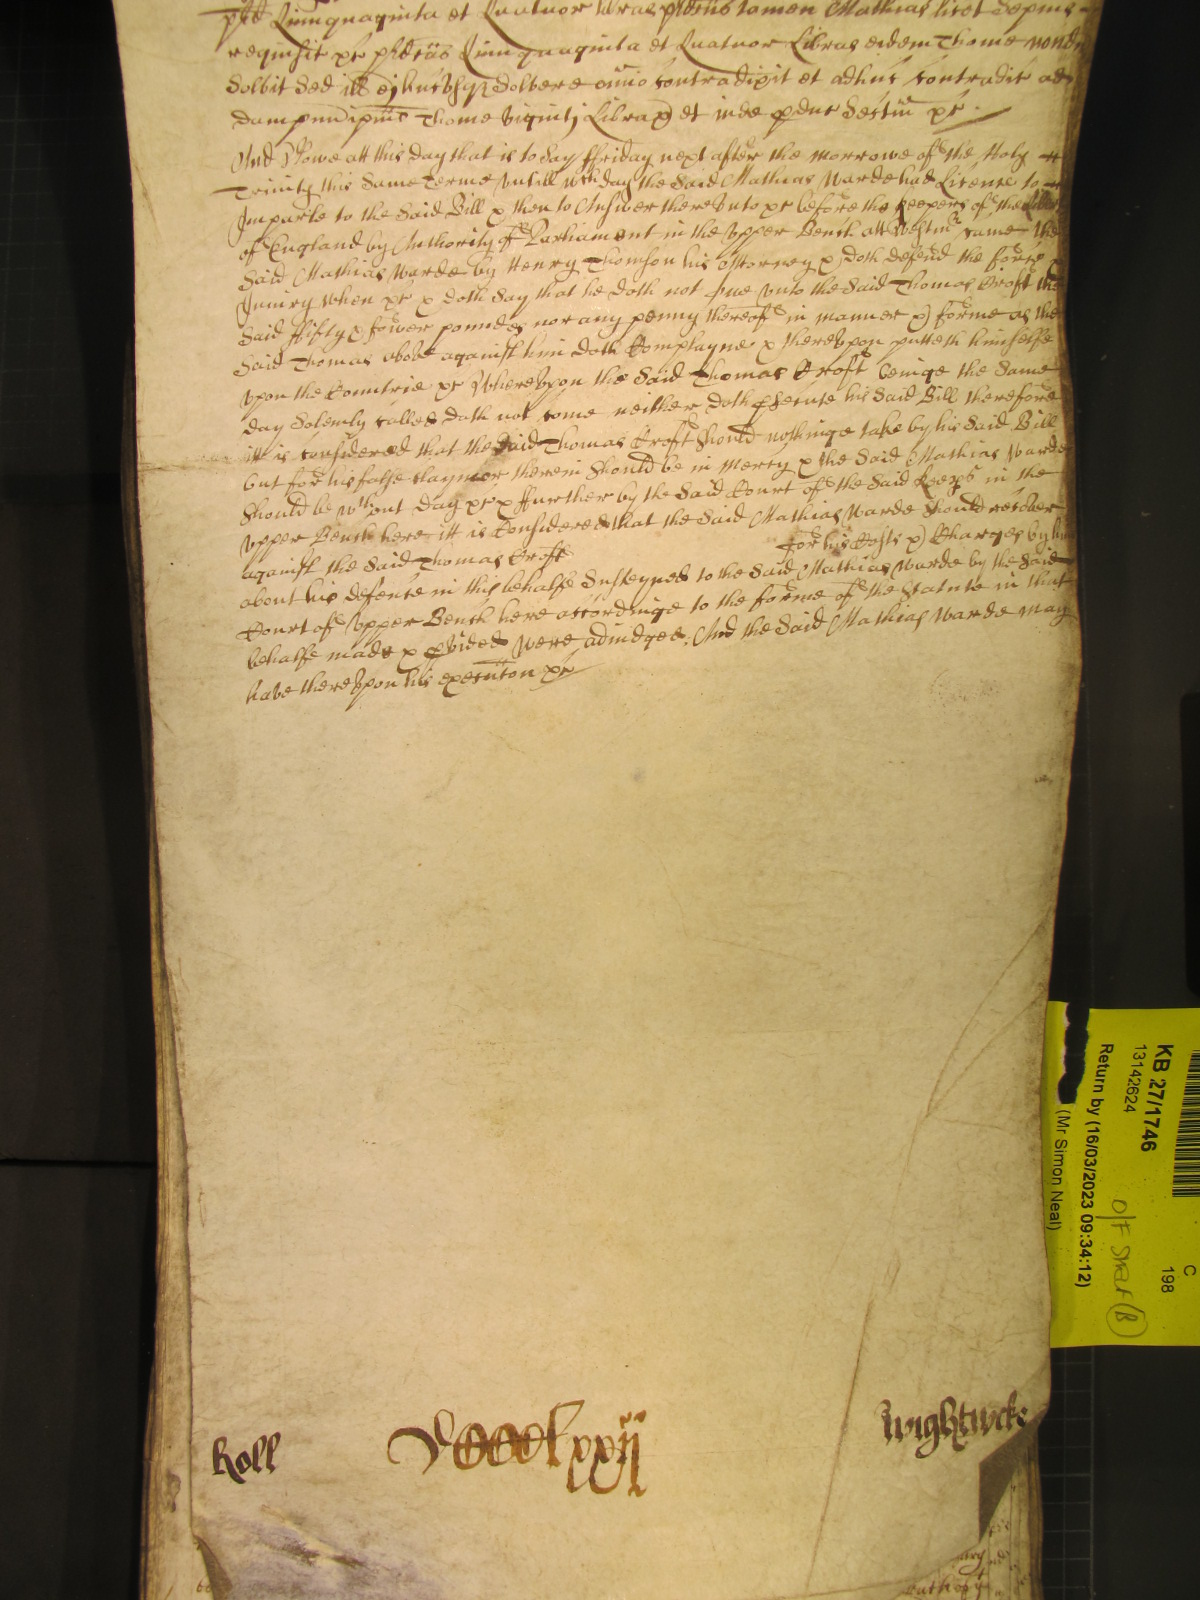 pred Quinquaginta et Quatuor libras predictus tamen Mathias licet Sepius
requisit &c predictas Quinquaginta et Quatuor Libras eidem Thome nondum
Solvit Sed ill ei hucusque Solvere omnino contradixit et adhuc contradic ad
dampnum ipius Thome viginti Librar et inde producit Sectam &c
And Nowe att this day that is to Say ffriday next after the morrowe of the Holy
Trinity this Same Terme untill wch day the Said Mathias Warde had Licence to
Imparle to the Said Bill & then to Answer thereunto &c before the keepers of the Liberty
of England by Authority of Parliament in the upper Bench att Westmr came the
Said Mathias Warde by Henry Thomson his Attorney & doth defend the force &
Iniury when &c & doth Say that he doth not owe unto the Said Thomas Croft the
Said ffifty & fower poundes nor any penny thereof in manner & forme as the
Said Thomas above against him doth Complayne & thereupon putteth himselfe
upon the Countrie &c Whereupon the Said Thomas Croft beinge the Same
day Solemly called doth not come neither doth prsecute his Said Bill therefore
itt is considered that the Said Thomas Croft Should nothinge take by his Said Bill
but for his false claymor therein Should be in mercy & the Said Mathias Warde
Should be wthout day &c & ffurther by the Said Court of the Said keeps in the
upper Bench here itt is Considered that the Said Mathias Warde Should recover
against the Said Thomas Croft for his Costs & Charges by him
about his defence in this behalfe Susteyned to the Said Mathias Warde by the Said
Court of upper Bench here accordinge to the forme of the Statute in that
behalfe made & pvided were adiudged. And the Said Mathias Warde may
have thereupon his execution &c
Roll
xxij
Wightwicke
KB 27/1746
13142624
Return by (16/03/2023 09:34:12)
(Mr Simon Neal)
C
198
O/F Shelf (B)